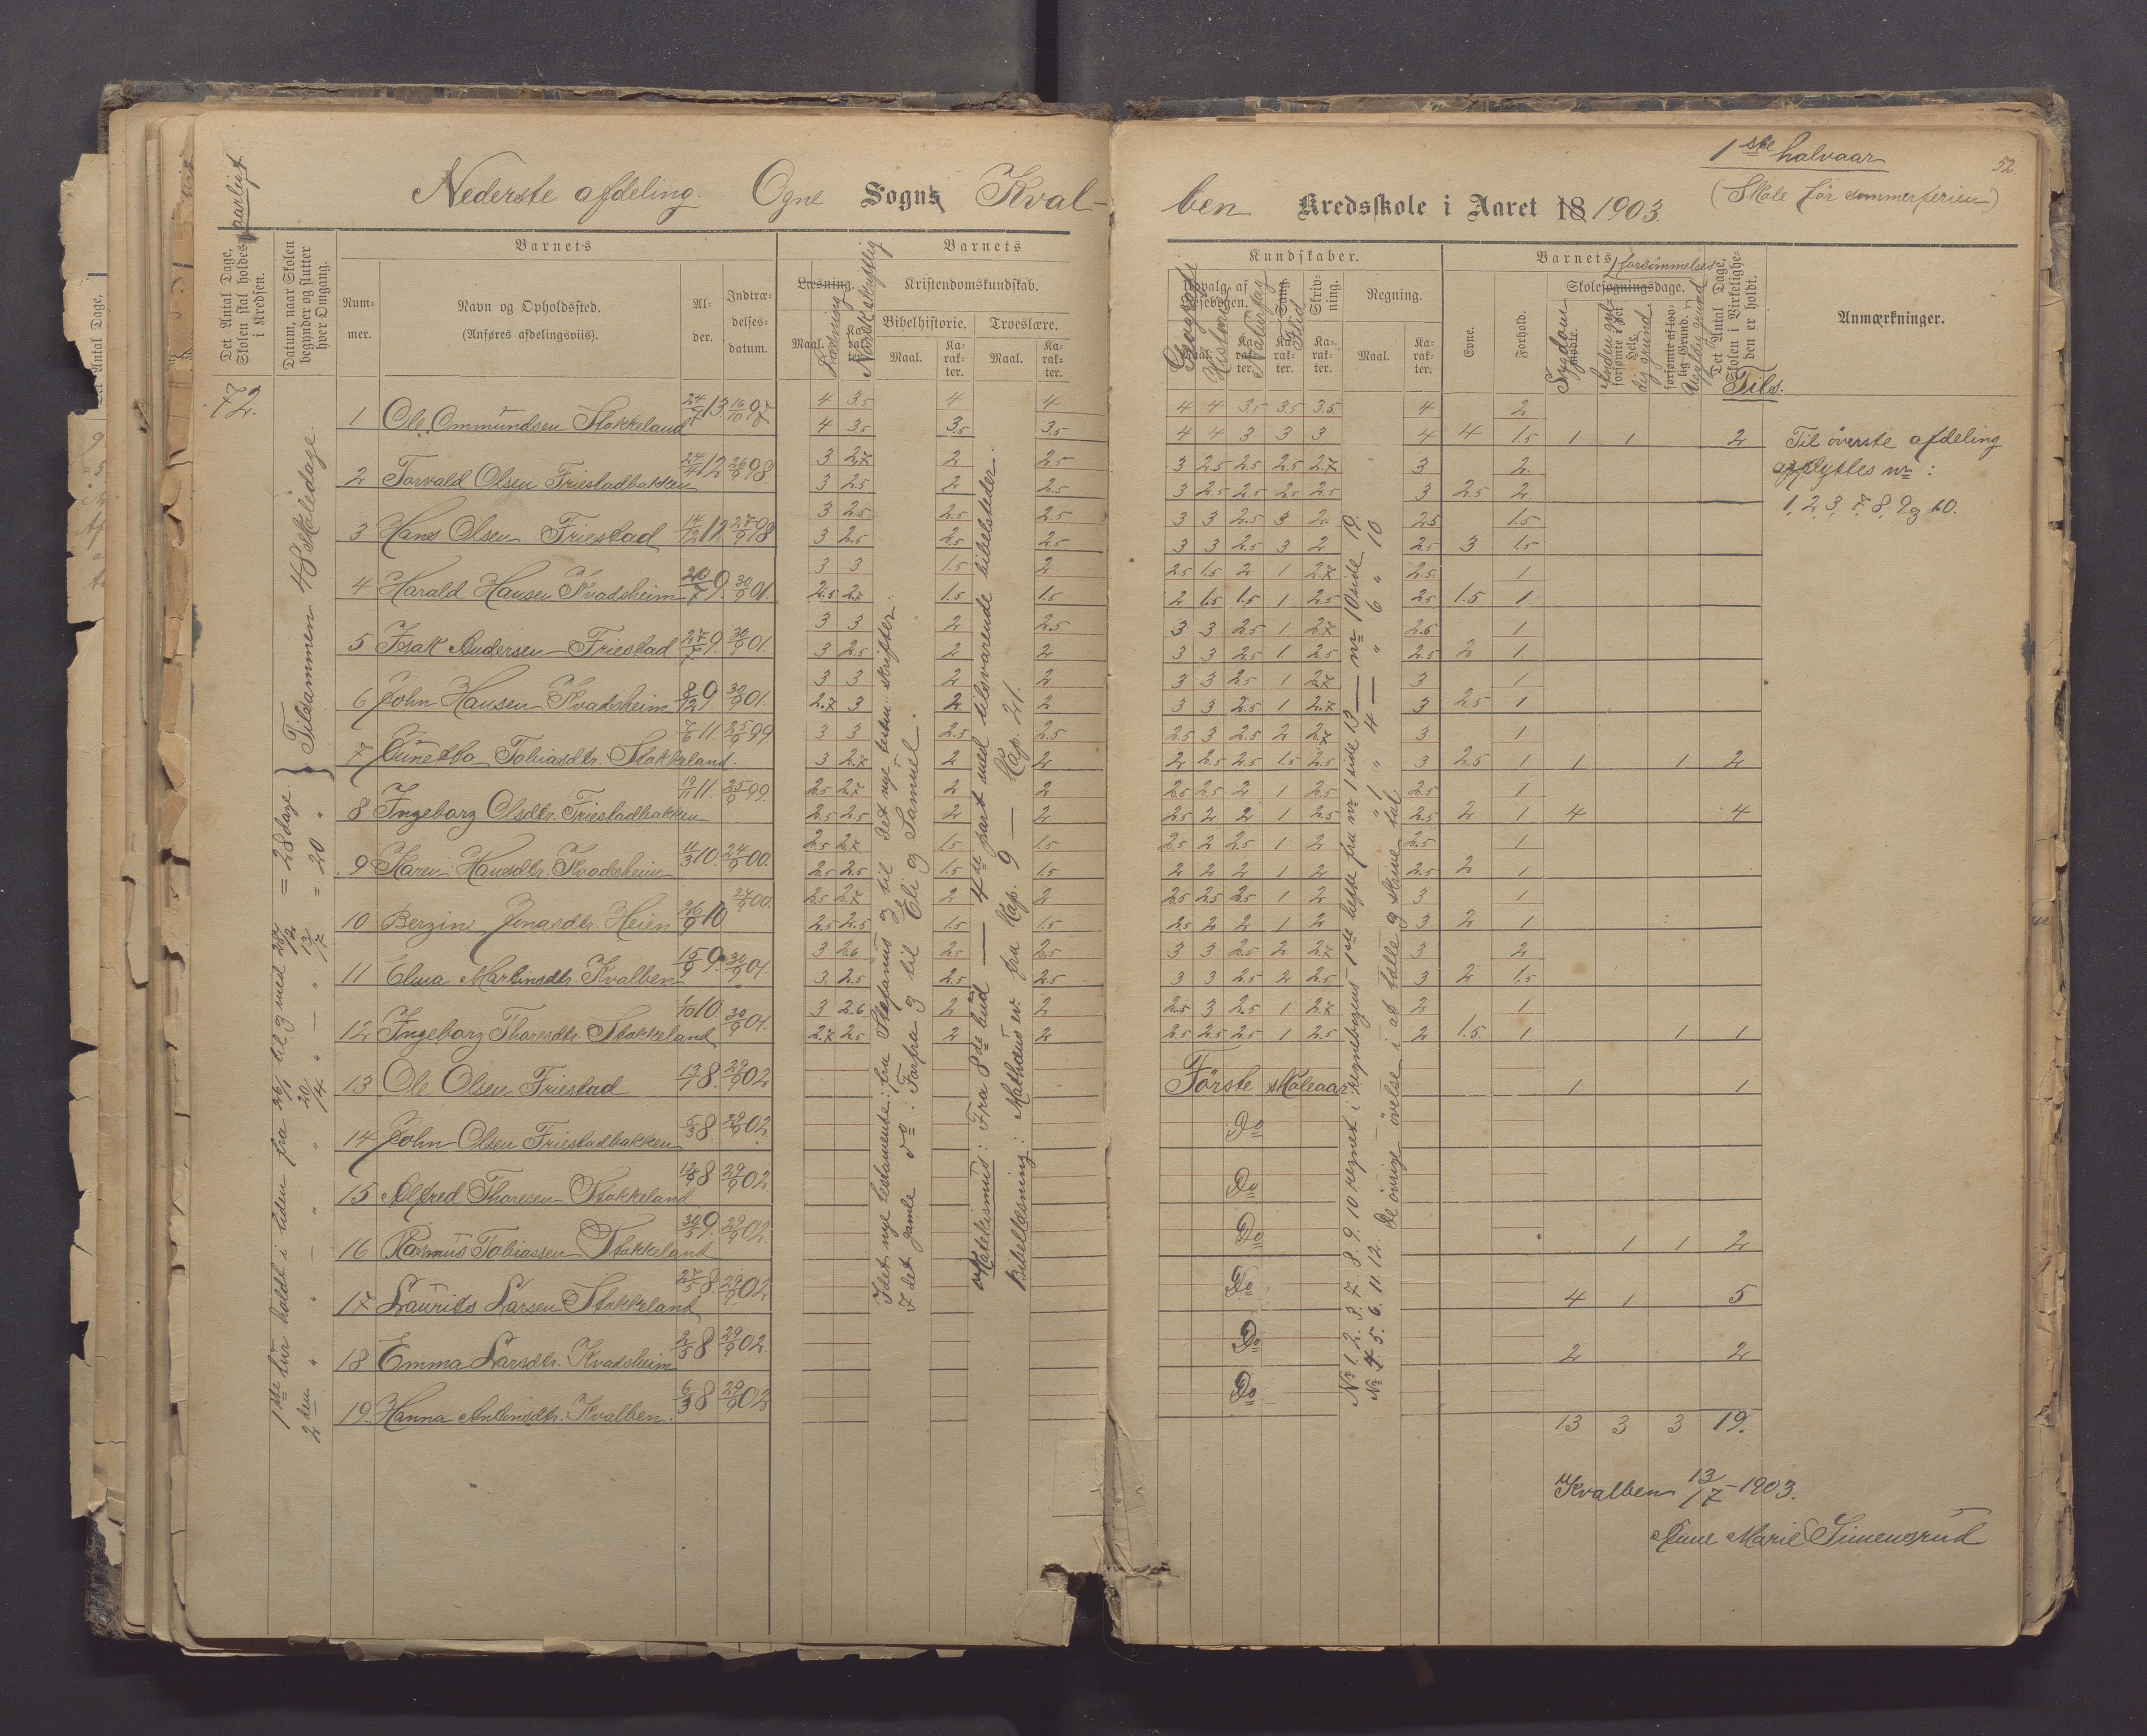 Nederste afdeling. Ogne Sogns Kval-
aarligt
Det Antal Dage, Skolen skal holdes i Kredsen.
Datum, naar Skolen begynder og slutter hver Omgang.
Barnets
Num-mer.
Navn og Opholdssted.
(Anføres afdelingsviis).
Al-der.
Indtræ-delses-datum.
Barnets
Læsning.
Maal.
Ka-rak-ter.
Læsning
Norsk skriftlig
Kristendomskundskab.
Bibelhistorie.
Troeslære.
Maal.
Ka-rak-ter.
Maal.
Ka-rak-ter.
72.
1 Ole Ommundsen Stokkeland 24/9 13 16/10 97. 4 3.5 4 4
4 3.5 3.5 3.5
2 Torvald Olsen Friestadbakken 24/4 12 26/9 98. 3 2.7 2 2.5
3 2.5 2 2.5
3 Hans Olsen Friestad 14/12 12 27/9 98 3 2.5 2.5 2.5
3 2.5 2.5 2.5
4 Harald Hansen Kvadsheim 20/7 9. 30/9 01. 3 3 1.5 2
2.5 2.7 1.5 1.5
5 Isak Andersen Friestad 27/7 9. 30/9 01. 3 3 2 2.5
3 2.5 2 2
6 John Hansen Kvadsheim 8/12 9 30/9 01. 3 3 2 2
2.7 3 2 2
7 Gunetta Tobiasdtr. Stokkeland. 7/6 11. 25/9 99. 3 3 2.5 2.5
3 2.7 2 2
8 Ingeborg Olsdtr. Friestadbakken 19/11 11. 25/9 99. 2.5 2.7 2 2
2.5 2.5 2 2
9 Karen Hansdtr. Kvadsheim 11/3 10. 24/9 00. 2.5 2.7 1.5 1.5
2.5 2.5 1.5 1.5
10 Bergine Jonasdtr. Heien 26/9 10 24/9 00. 2.5 2.7 2 2
2.5 2.5 1.5 1.5
11 Elma Martinsdtr. Kvalben 15/9 9. 30/9 01. 3 2.6 2.5 2.5
3 2.5 2.5 2.5
12 Ingeborg Thoresdtr. Stokkeland 1/10 10. 30/9 01. 3 2.6 2 2
2.7 2.5 2 2
13 Ole Olsen Friestad 13/7 8. 29/9 02
14 John Olsen Friestadbakken 5/3 8. 29/9 02.
15 Alfred Thoresen Stokkeland 12/9 8 29/9 02.
16 Rasmus Tobiassen Stokkeland 30/3 9. 29/9 02.
17 Laurits Larsen Stokkeland 27/5 8. 29/9 02
18 Emma Larsdtr. Kvadsheim 2/5 8 29/9 02.
19. Hanna Antonsdtr. Kvalben. 6/3 8 29/9 02
1ste tur holdt i tiden fra 26/1 til og med 28/2 = 28 dage.
2den " " " 20/4 " — " 13/7 = 20 "
Tilsammen 48 skoledage.
I det nye testamente: fra Stefanus og til det nye testm. skrifter.
I det gamle do: Forfra og til Eli og Samuel.
Katekismus: Fra 8de bud — 4de part med tilsvarende bibelsteder.
Bibellæsning: Mathæus ev. fra Kap. 9 — Kap. 21.
1ste halvaar
(Skole før sommerferien)
52.
ben Kredsskole i Aaret 18 1903.
Kundskaber.
Udvalg af Læsebogen.
Geografi
Historie
Naturfag
Sang.
Flid
Skriv-ning.
Ka-rak-ter.
Regning.
Maal.
Ka-rak-ter.
Barnets
Evne.
Forhold.
forsømmelser
Skolesøgningsdage.
Sygdom
mødte.
Anden gyl-dig grund
forsømte i det Hele.
forsømte af lov-lig Grund.
Ugyldig grund
Det Antal Dage, Skolen i Virkelighe-den er holdt.
Tils.
Anmærkninger.
4 4 3.5 3.5 3.5 4 2
4 4 3 3 3 4 4 1.5 1 1 2
3 2.5 2.5 2.5 2.7 3 2.
3 2.5 2.5 2.5 2.5 3 2.5 2.
3 3 2.5 3 2. 2.5 1.5
3 3 2.5 3 2 2.5 3 1.5
2.5 1.5 2 1 2.7 2.5. 1
2 1.5 1.5 1 2.5 2.5 1.5 1
3 3 2.5 1 2.7 2.5 1
3 3 2.5 1. 2.5 2.5 2 1.
3 3 2.5 1 2.7 3 1
3 3 2.5 1 2.7 3 2.5 1
2.5 3 2.5 2 2.7 3 1
2 2.5 2.5 1.5 2.5 3 2.5 1 1 1 2
2.5 2.5 2 1 2.5 2.5 1
2.5 2 2 1 2.5 2.5 2 1 4 4
2.5 2 2.5 1 2 2.5 1
2 2 2 1 2 2.5 2 1
2.5 2.5 2.5 1 2 3 1
2.5 2 2 1 2 3 2 1
3 3 2.5 2 2.7 3 2
3 3 2.5 2 2.5 3 2 1.5
2.5 3 2.5 1 2.7 2 1
2.5 2.5 2.5 1 2.5 2 1.5. 1 1 1
Første skoleaar 1 1
Do
Do
Do 1 1 2
Do 4 1 5
Do 2 2
Do
13 3 3 19.
No 1. 2. 3. 7. 8. 9. 10 regnet i regnebogens 1ste hefte fra nr 1 side 13 — nr 10 side 19.
No 4. 5. 6. 11. 12. " 1 " 4 — " 6 " 10
De øvrige øvelse i at tælle og skrive tal
Til øverste afdeling
opflyttes nr:
1, 2, 3, 7. 8, 9 og 10.
Kvalben 13/7 - 1903.
Anne Marie Simensrud